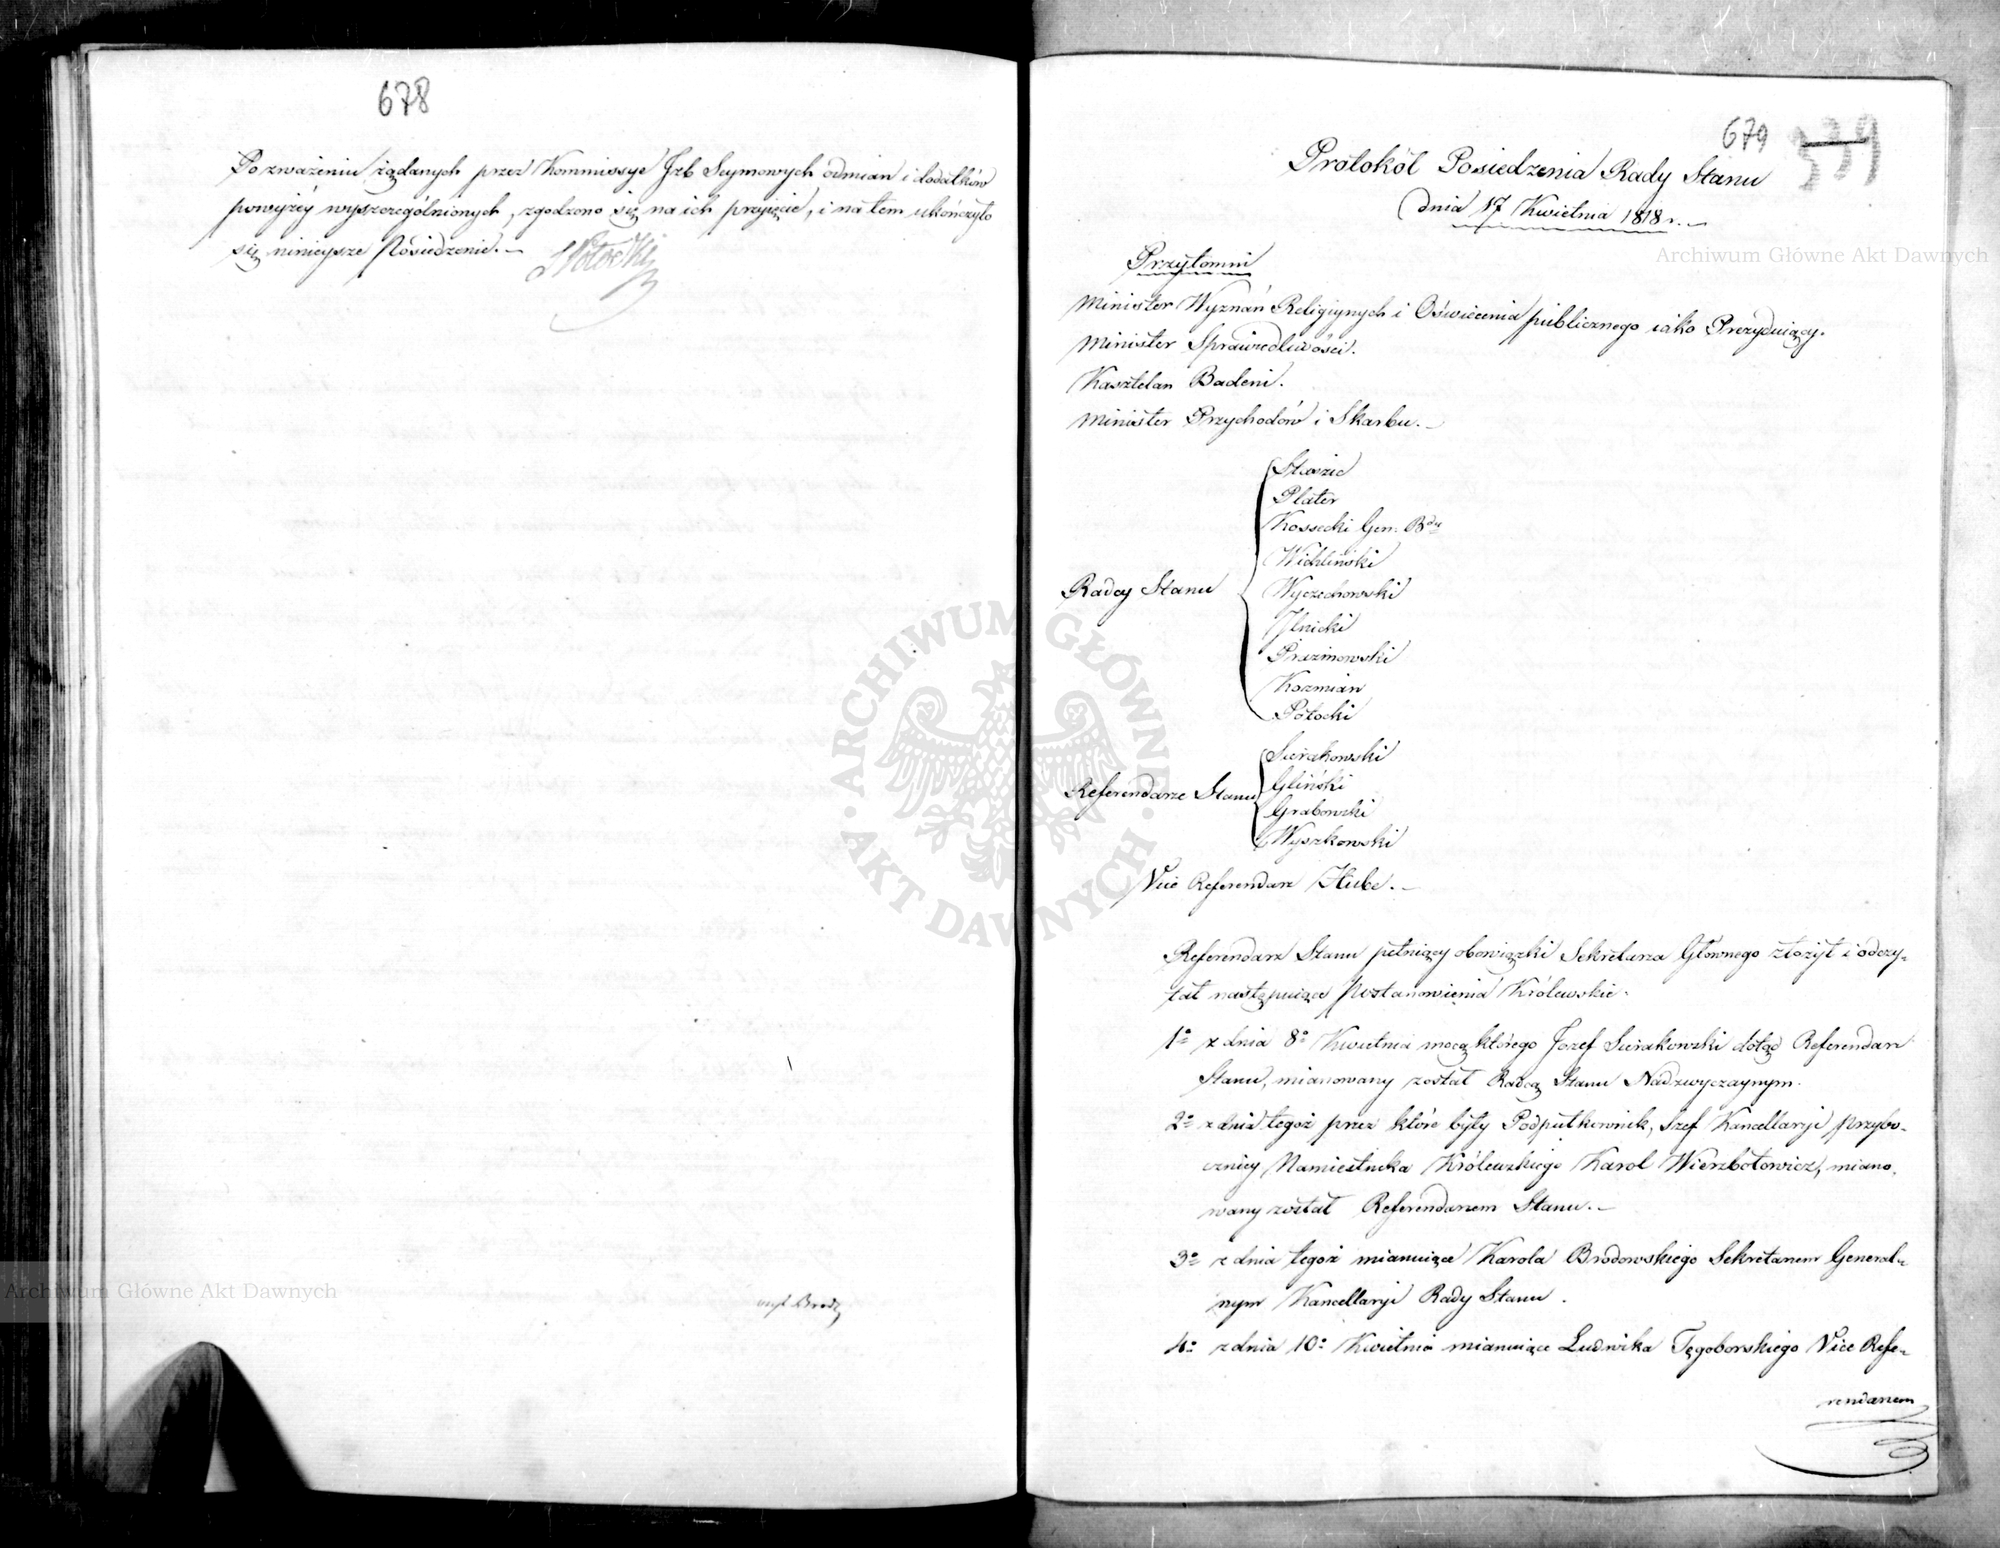 678
Po zważeniu żądanych przez Kommissye Jzb Seymowych odmian i dodatków
powyżéy wyszczególnionych, zgodzono się na ich przyięcie, i na tem ukończyło
się ninieysze Posiedzenie.—
SPotocki
679
Protokół Posiedzenia Rady Stanu
dnia 17 Kwietnia 1818 r.—
Archiwum Główne Akt Dawnych
Przytomni
Minister Wyznań Religiynych i Oświecenia publicznego iako Prezyduiący.
Minister Sprawiedliwości.
Kasztelan Badeni.
Minister Przychodów i Skarbu.—
Radcy Stanu
Staszic
Plater
Kossecki Gen: Bdy
Wichliński
Wyczechowski
Jlnicki
Prazmowski
Kozmian
Potocki
Referendarze Stanu
Sierakowski
Gliński
Grabowski
Wyszkowski
Vice Referendarz Hube.—
Referendarz Stanu pełniący obowiązki Sekretarza Głownego złożył i odczy-
tał następuiące Postanowienia Królewskie.
1o z dnia 8o Kwietnia mocą którego Jozef Sierakowski dotąd Referendarz
Stanu, mianowany został Radcą Stanu Nadzwyczaynym.
2o z dnia tegoż przez które były Podpułkownik, Szef Kancellaryi przybo-
czney Namiestnika Królewskiego Karol Wierzbołowicz, miano-
wany został Referendarzem Stanu.—
3o z dnia tegoż mianuiące Karola Brodowskiego Sekretarzem General-
nym Kancellaryi Rady Stanu.
4o z dnia 10o Kwietnia mianuiące Ludwika Tęgoborskiego Vice Refe-
rendarzem
Archiwum Główne Akt Dawnych
ARCHIWUM GŁÓWNE AKT DAWNYCH